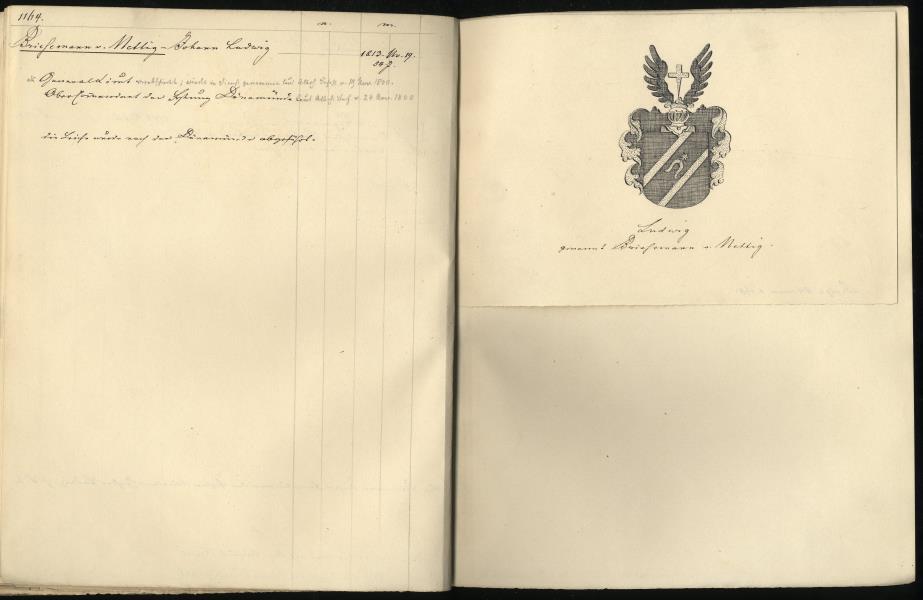 1164.
n. m.
Briesemann v. Nettig - Johann Ludwig
1813. Nov. 19.
84 J.
als Generallieut verabschiedet; wieder in Dienst genommen laut Allerh. Befehl v. 19 Nov. 1800.
Obercommandant der Festung Dünamünde laut Allerh. Befehl v. 24 Nov. 1800
die Leiche wurde nach der Dünamünde abgeführt.
Ludwig
genannt Briesemann v. Nettig.